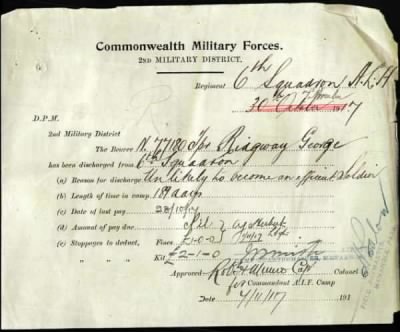 Commonwealth Military Forces.
2ND MILITARY DISTRICT.
Regiment 6th Squadron A.L.H
30 October 1917
D.P.M.
2nd Military District
The Bearer N. 77180 Tpr Ridgway George
has been discharged from 6th Squadron
(a) Reason for discharge Unlikely to become an efficient Soldier
(b) Length of time in camp 18 days
(c) Date of last pay 28/10/17
(d) Amount of pay due Nil
(e) Stoppages to deduct, Fines £1-0-0
" " " Kit £2-1-0
Approved Capt Colonel
for Commandant A.I.F. Camp
Date 7/11/17 191